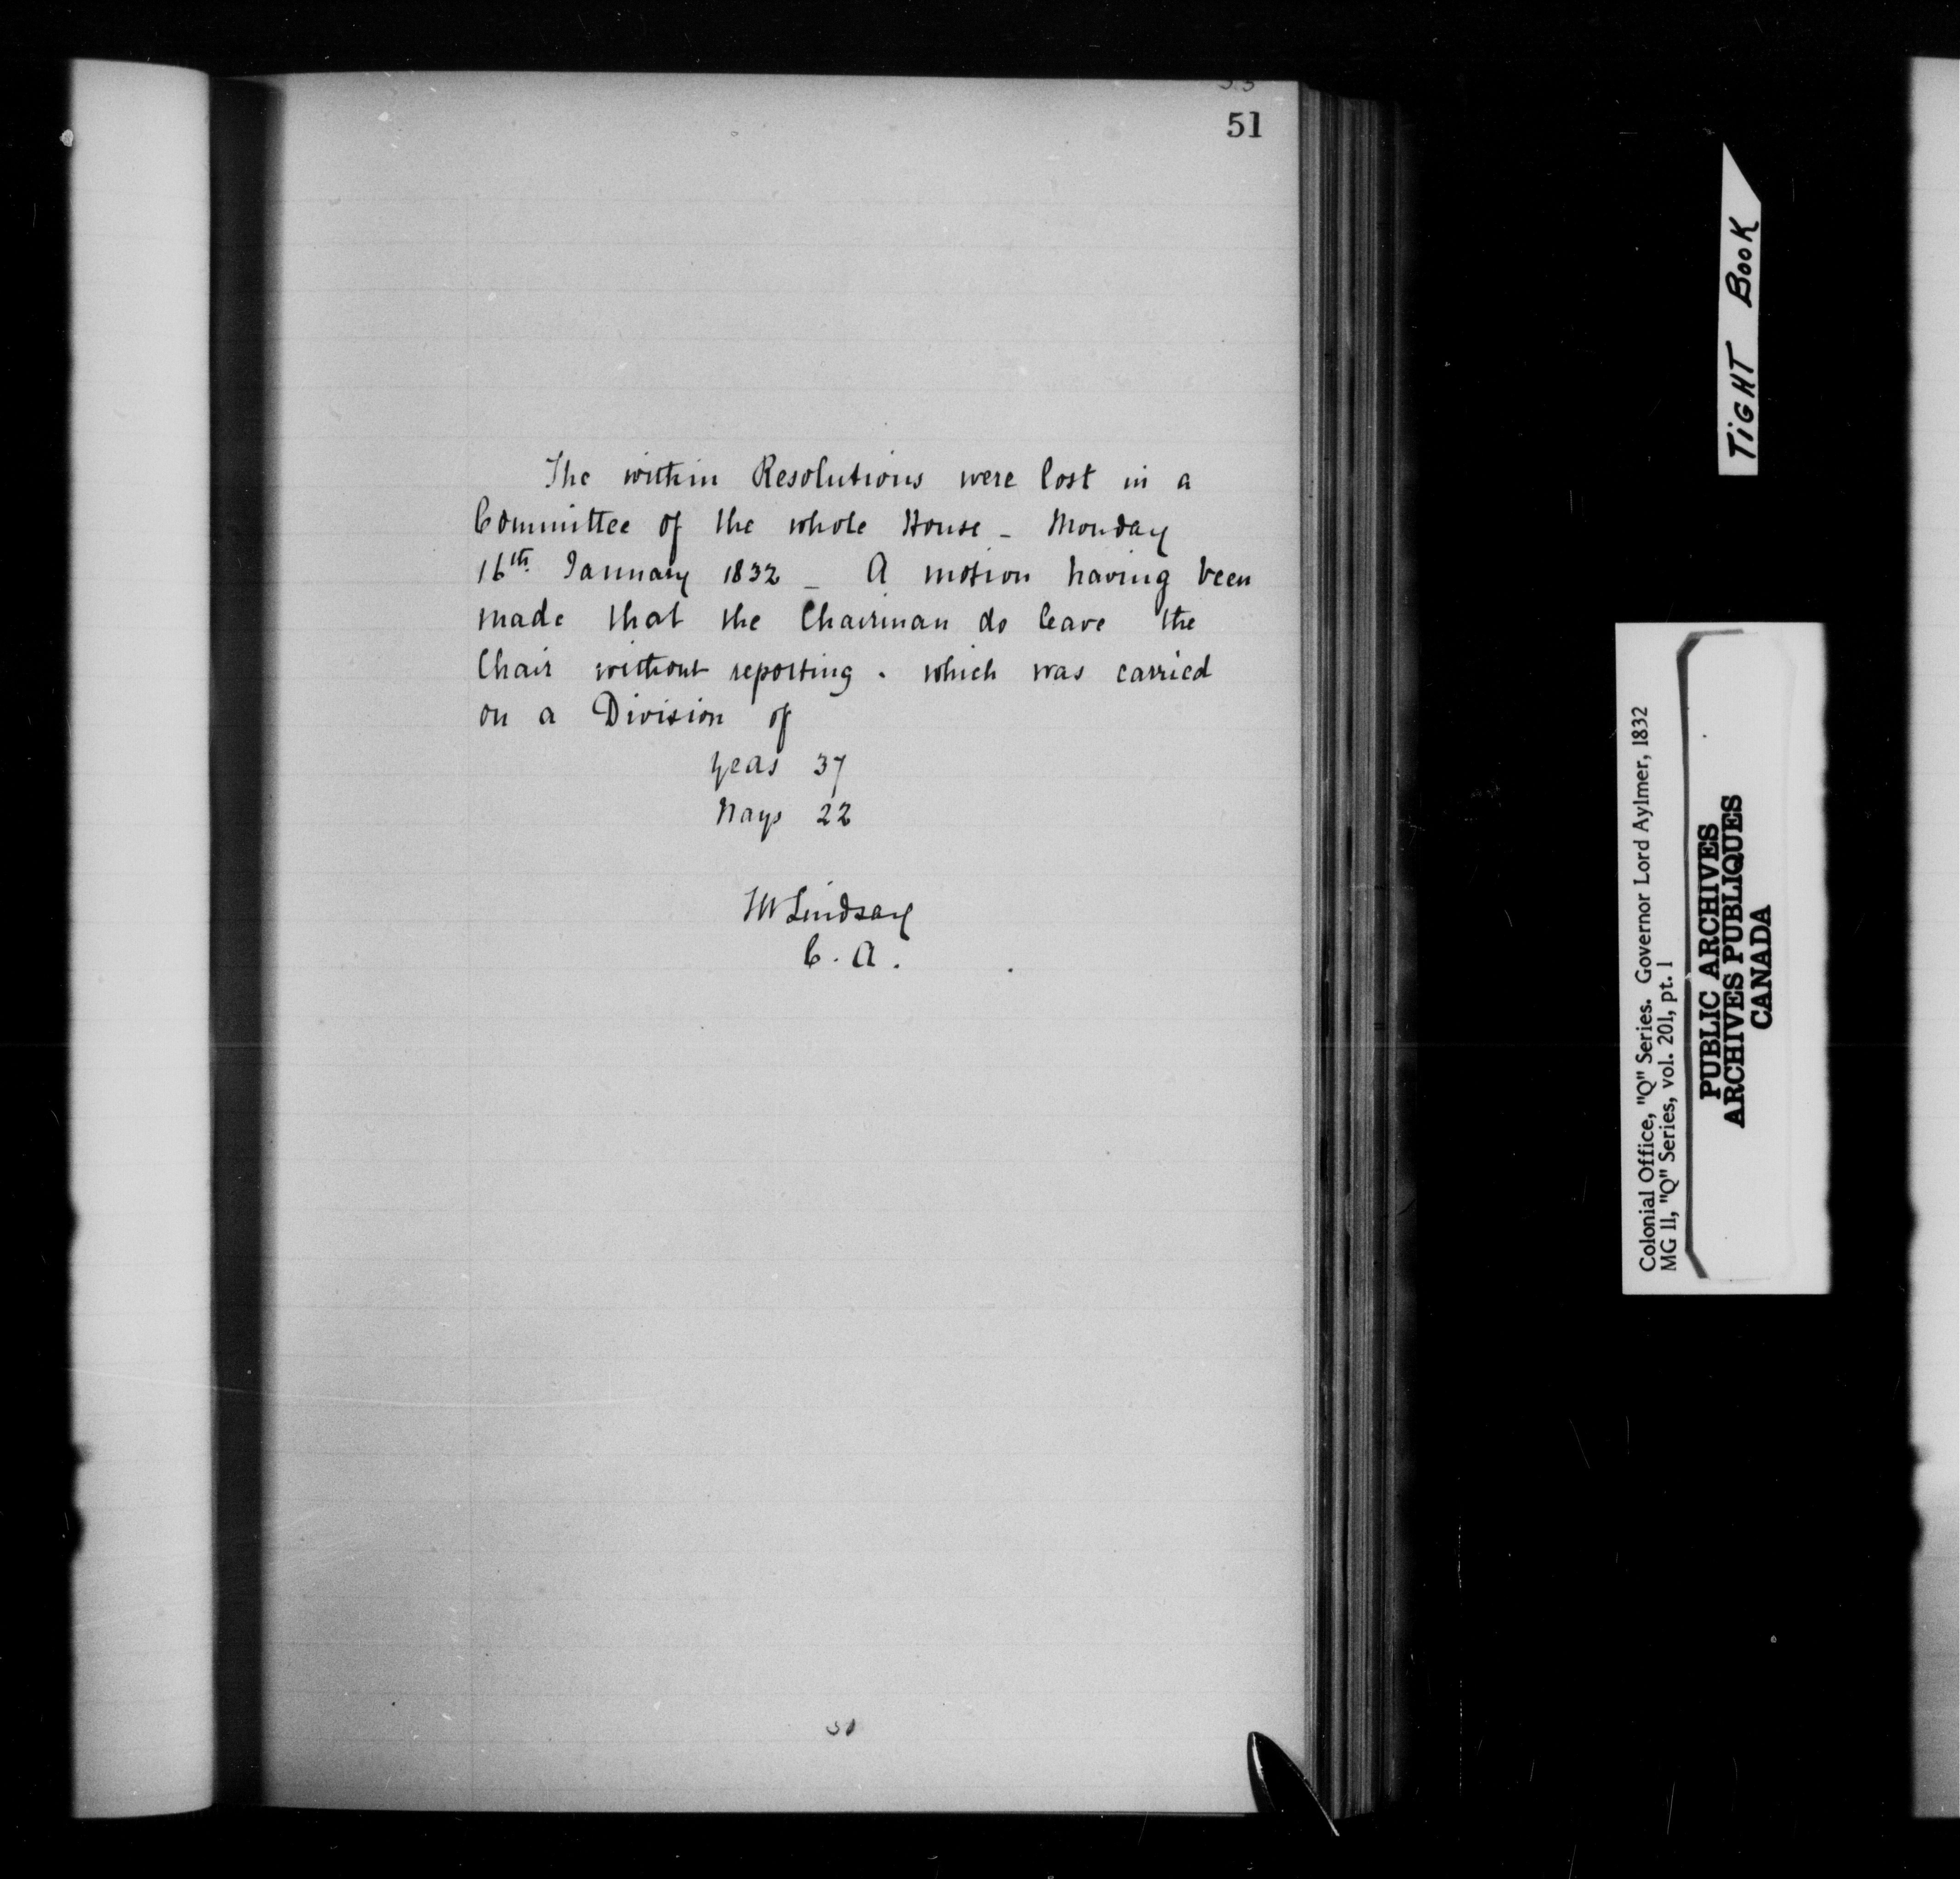 51
The within Resolutions were lost in a
Committee of the whole House - Monday
16th January 1832 - A motion having been
made that the Chairman do leave the
Chair without reporting . which was carried
on a Division of
yeas 37
Nays 22
W Lindsay
C. A.
TiGHT BOOK
Colonial Office, "Q" Series. Governor Lord Aylmer, 1832
MG 11, "Q" Series, vol. 201, pt. 1
PUBLIC ARCHIVES
ARCHIVES PUBLIQUES
CANADA